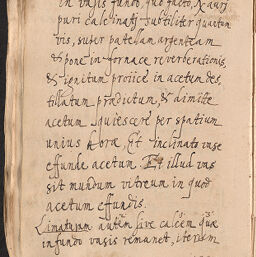 in vasis fundo, quo facto, & auri
puri calcinati subtiliter quantum
vis, super patellam argenteam
& pone in fornace reverberationis,
& ignitum proiice in acetum des,
tillatum prædictum, & dimitte
acetum quiescere per spatium
unius horæ, Et inclinato vase
effunde acetum. Et illud vas
sit mundum vitreum in quod
acetum effundis.
Limaturam autem sive calcem quæ
in fundo vasis remanet, iterum